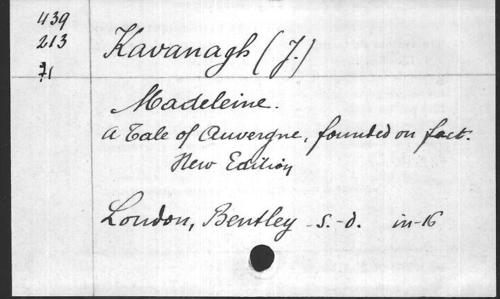 439
213
71
Kavanagh (J.)
Madeleine.
a Tale of Auvergne, founded on fact.
New Edition
London, Bentley - s.-d. in-16